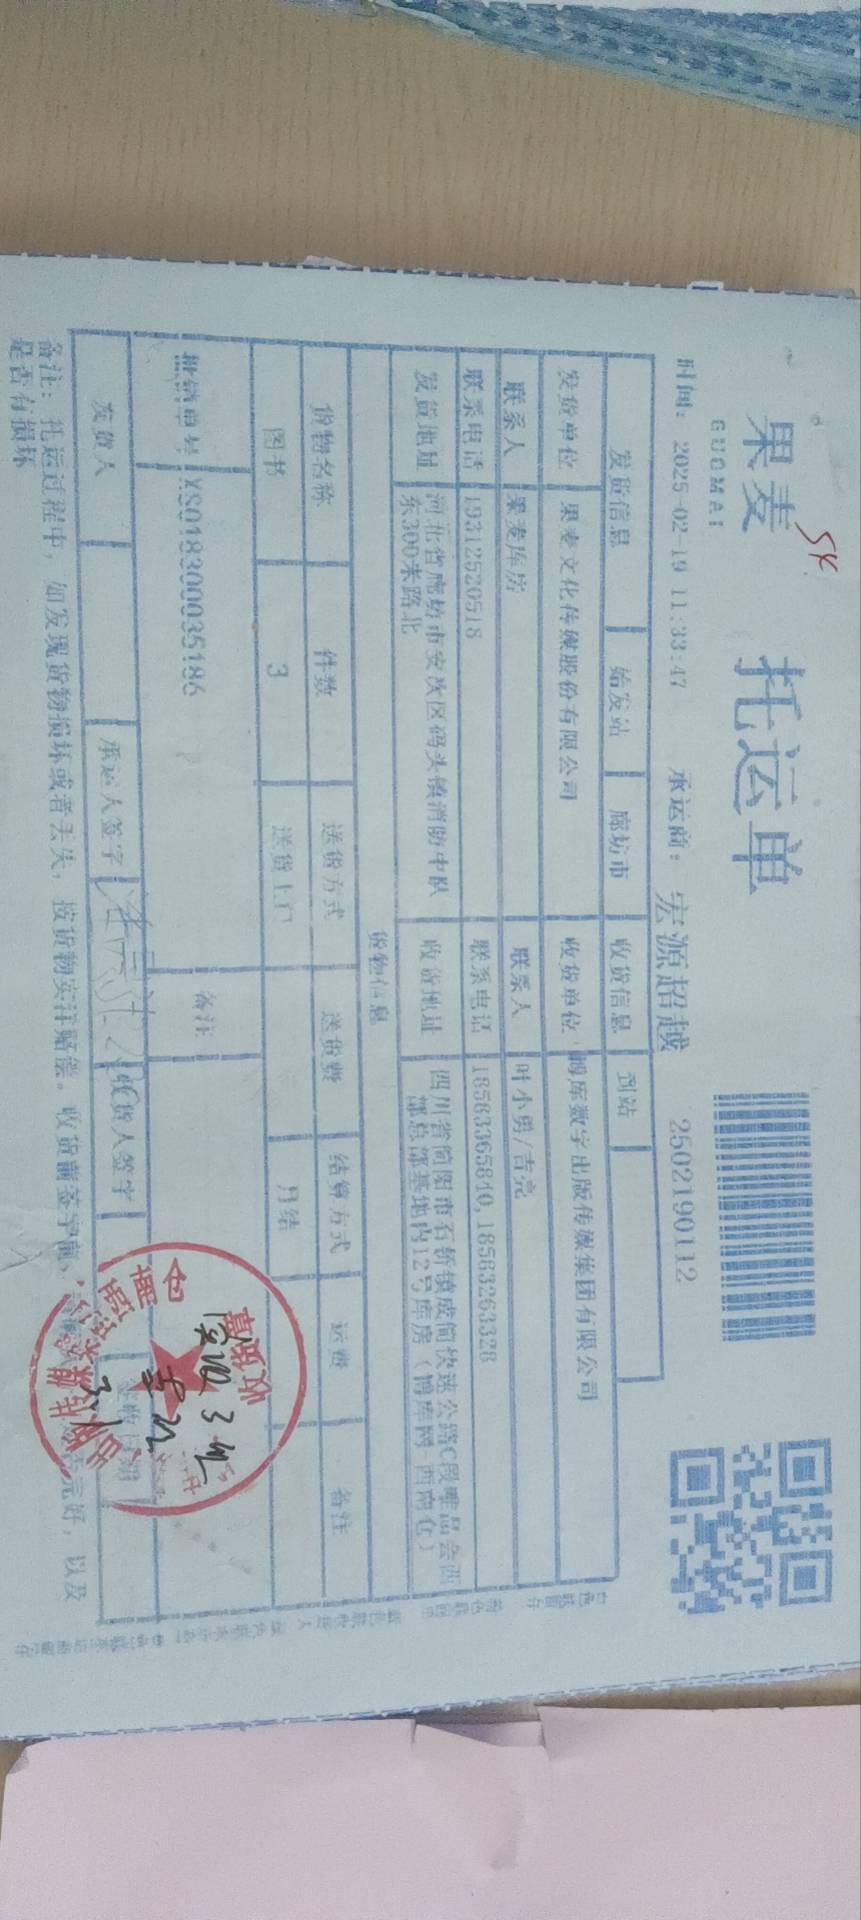 果麦
GUOMAI
托运单
54
时间: 2025-02-19 11:33:47 承运商: 宏源超越 2502190112
发货信息 始发站 廊坊市 收货信息 到站
发货单位 果麦文化传媒股份有限公司 收货单位 博库数字出版传媒集团有限公司
联系人 果麦库房 联系人 叶小勇/吉亮
联系电话 19312520518 联系电话 18583365840,18583263328
发货地址 河北省廊坊市安次区码头镇消防中队东300米路北 收货地址 四川省简阳市石桥镇成简快速公路C段唯品会西部总部基地内12号库房(博库网-西南仓)
货物信息
货物名称 件数 送货方式 送货费 结算方式 运费 备注
图书 3 送货上门 月结
批销单号 XS018300035186 备注
发货人 承运人签字 收货人签字 签收日期
收货章
实收3包
备注: 托运过程中, 如发现货物损坏或者丢失, 按货物实洋赔偿。收货前签字前,
完好, 以及
是否有损坏